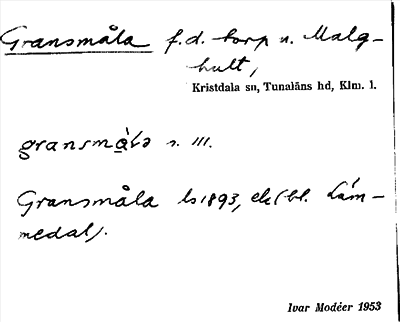 Gransmåla f.d. torp u. Malg-
hult,
Kristdala sn, Tunaläns hd, Klm. l.
gransmå̀la s. III.
Gransmåla ls 1893, ek (bl. Läm-
medal).
Ivar Modéer 1953